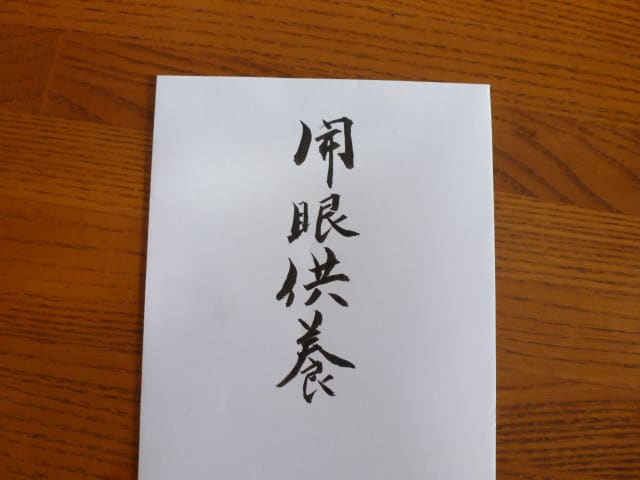 開眼供養